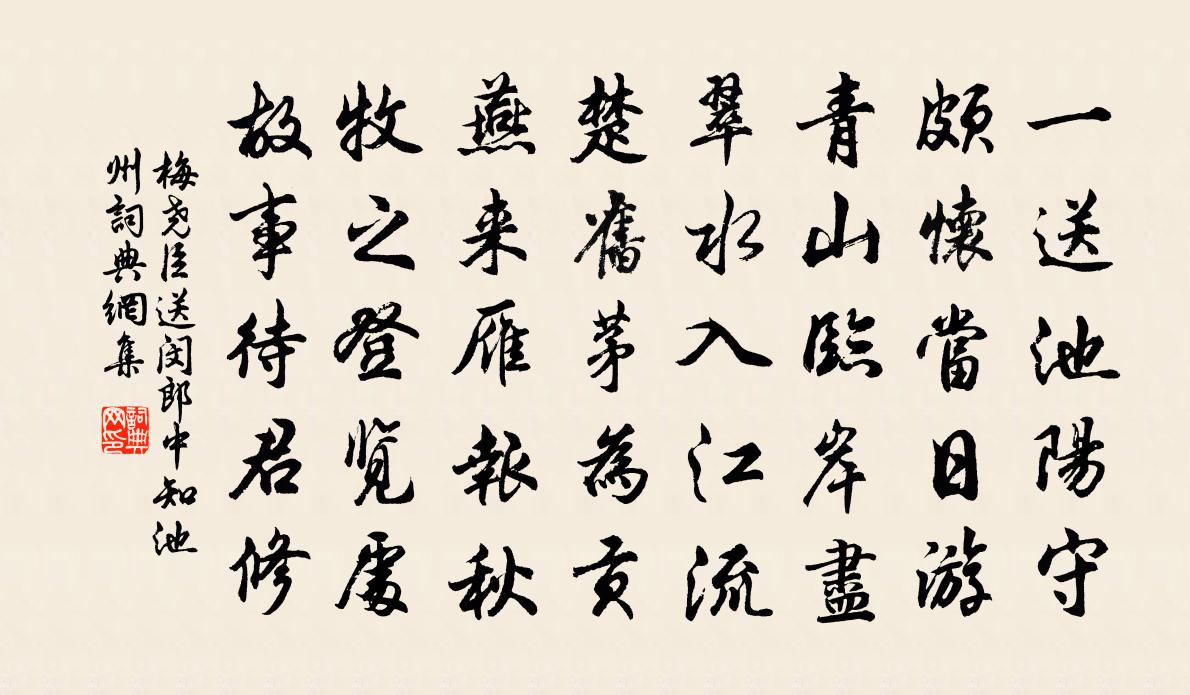 一送池陽守
頗懷當日游
青山臨岸盡
翠水入江流
楚舊茅為貢
燕来雁報秋
牧之登覽處
故事待君修
梅尧臣送闵郎中知池
州詞典網集
詞典
网印